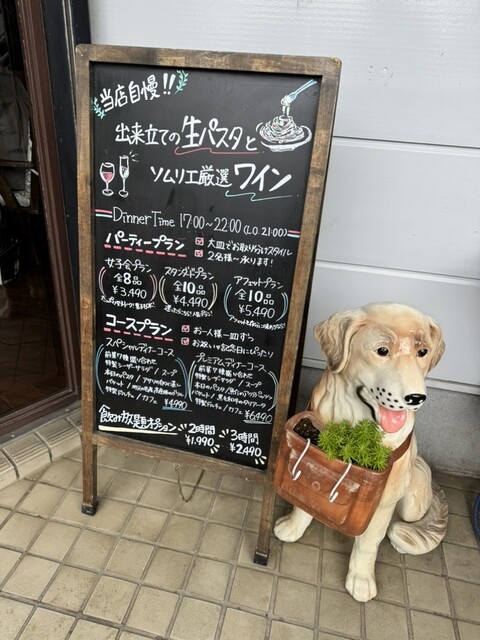 当店自慢!!
出来立ての生パスタと
ソムリエ厳選ワイン
Dinner Time 17:00~22:00 (L.O.21:00)
パーティープラン
大皿でお取り分けスタイル
2名様〜承ります!
女子会プラン
全8品
¥3,490
スタンダードプラン
全10品
¥4,490
アフェットプラン
全10品
¥5,490
コースプラン
お一人様一皿ずつ
お祝いや記念日にぴったり
スペシャルディナーコース
前菜7種盛り合わせ
特製シーザーサラダ / スープ
特製ドルチェ / カフェ ¥4,990
プレミアムディナーコース
前菜7種盛り合わせ
特製シーザーサラダ / スープ
特製ドルチェ / カフェ ¥6,490
飲み放題オプション
2時間
¥1,990
3時間
¥2,490